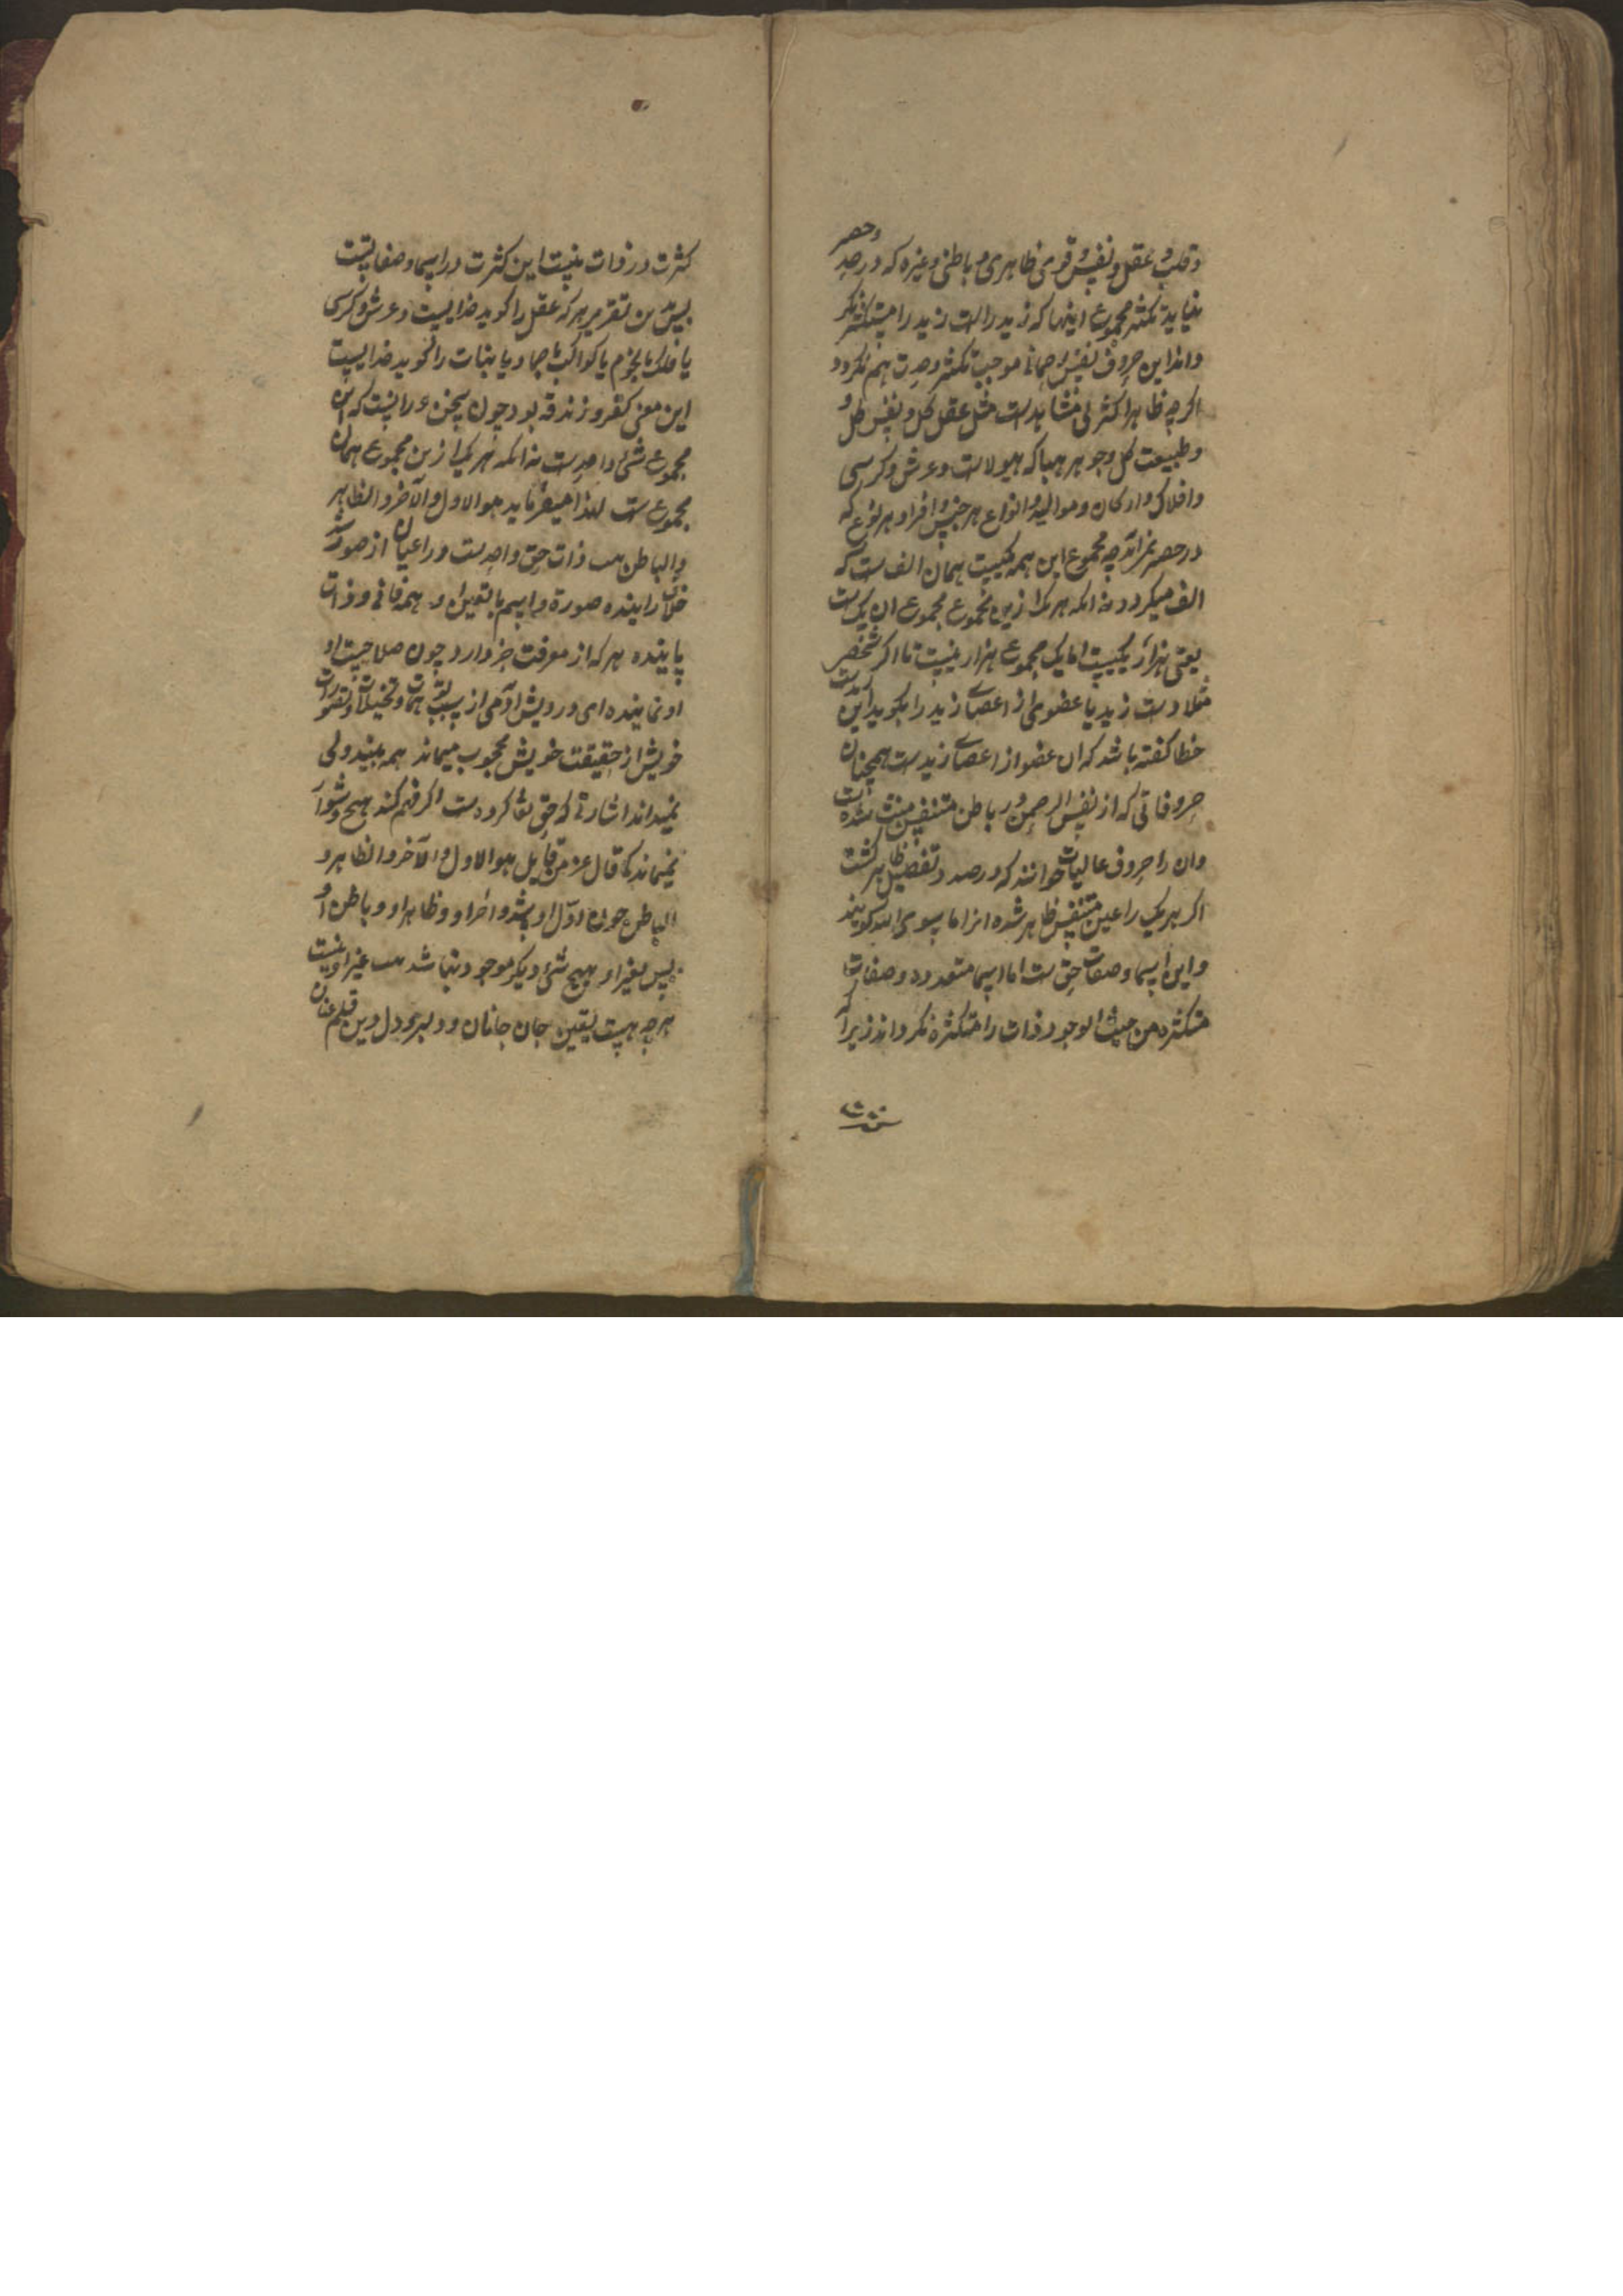 و قلب و عقل و نفس و قوی ظاهری و باطنی و غیره که در حد و حصر
نیاید تکثر مجموع اینها که زید راست زید را متکثر نکر
داند این حروف نفس رحمانی موجب تکثر وحدت هم نکردد
اکرچه ظاهرا کثرتی مشاهدست مثل عقل کل و نفس کل و
و طبیعت کل و جوهر هبا که هیولاست و عرش و کرسی
و افلاک و ارکان و موالید و انواع هر جنس و افراد هر نوع که
در حصر نیاید چه مجموع این همه یکیست همان الف ست که
الف میکردد نه انکه هر یک ازین مجموع مجموع ان یک ست
یعنی هزار یکیست اما یک مجموع هزار نیست تا اکر شخصی
مثلا دست زید یا عضوی از اعضای زید را بکوید این زیدست
خطا کفته باشد که ان عضو از اعضای زیدست همچنان
حروفاتی که از نفس الرحمن در باطن متنفس منتشی شده است
و ان را حروف عالیات خوانند که در صدد تفصیل ظاهر کشت
اکر هر یک را عین متنفس ظاهر شده انرا ما سوی الله کویند
و این اسما و صفات حق ست اما اسما متعدده و صفات
متکثره من حیث الوجود ذات را متکثره نکرداند زیرا که
کثرت
کثرت در ذات نیست این کثرت در اسما و صفاتست
پس برین تقریر هر که عقل را کوید خدایست و عرش و کرسی
یا فلک یا نجوم یا کواکب یا جماد یا نبات را کوید خدایست
این معنی کفر و زندقه بود چون سخن درانست که این
مجموع شیء واحدست نه انکه هر یک ازین مجموع همان
مجموع ست لهذا میفرماید هو الاول و الآخر و الظاهر
و الباطن ذات حق واحدست در اعیان از صور
خلق راینده صورة و اسم با تعین او همه فانی و ذات
پاینده هر که از معرفت خبر دارد چون صلاحیت او
او نماینده ای درویش آدمی از سبب توهمات و تخیلات و تصورات
خویش از حقیقت خویش محجوب میماند همه بیند ولی
نمیداند اشارتی که حق تعا کرده ست اکر فهم کند هیچ دشوار
نمیماند کما قال عز من قایل هو الاول و الآخر و الظاهر و
الباطن چون اول او باشد و آخر او و ظاهر او و باطن او
پس بغیر او هیچ شیء دیکر موجود نباشد غیر او نیست
هرچه هست یقین جان جانان و دلبر و دل و دین قلم عنان